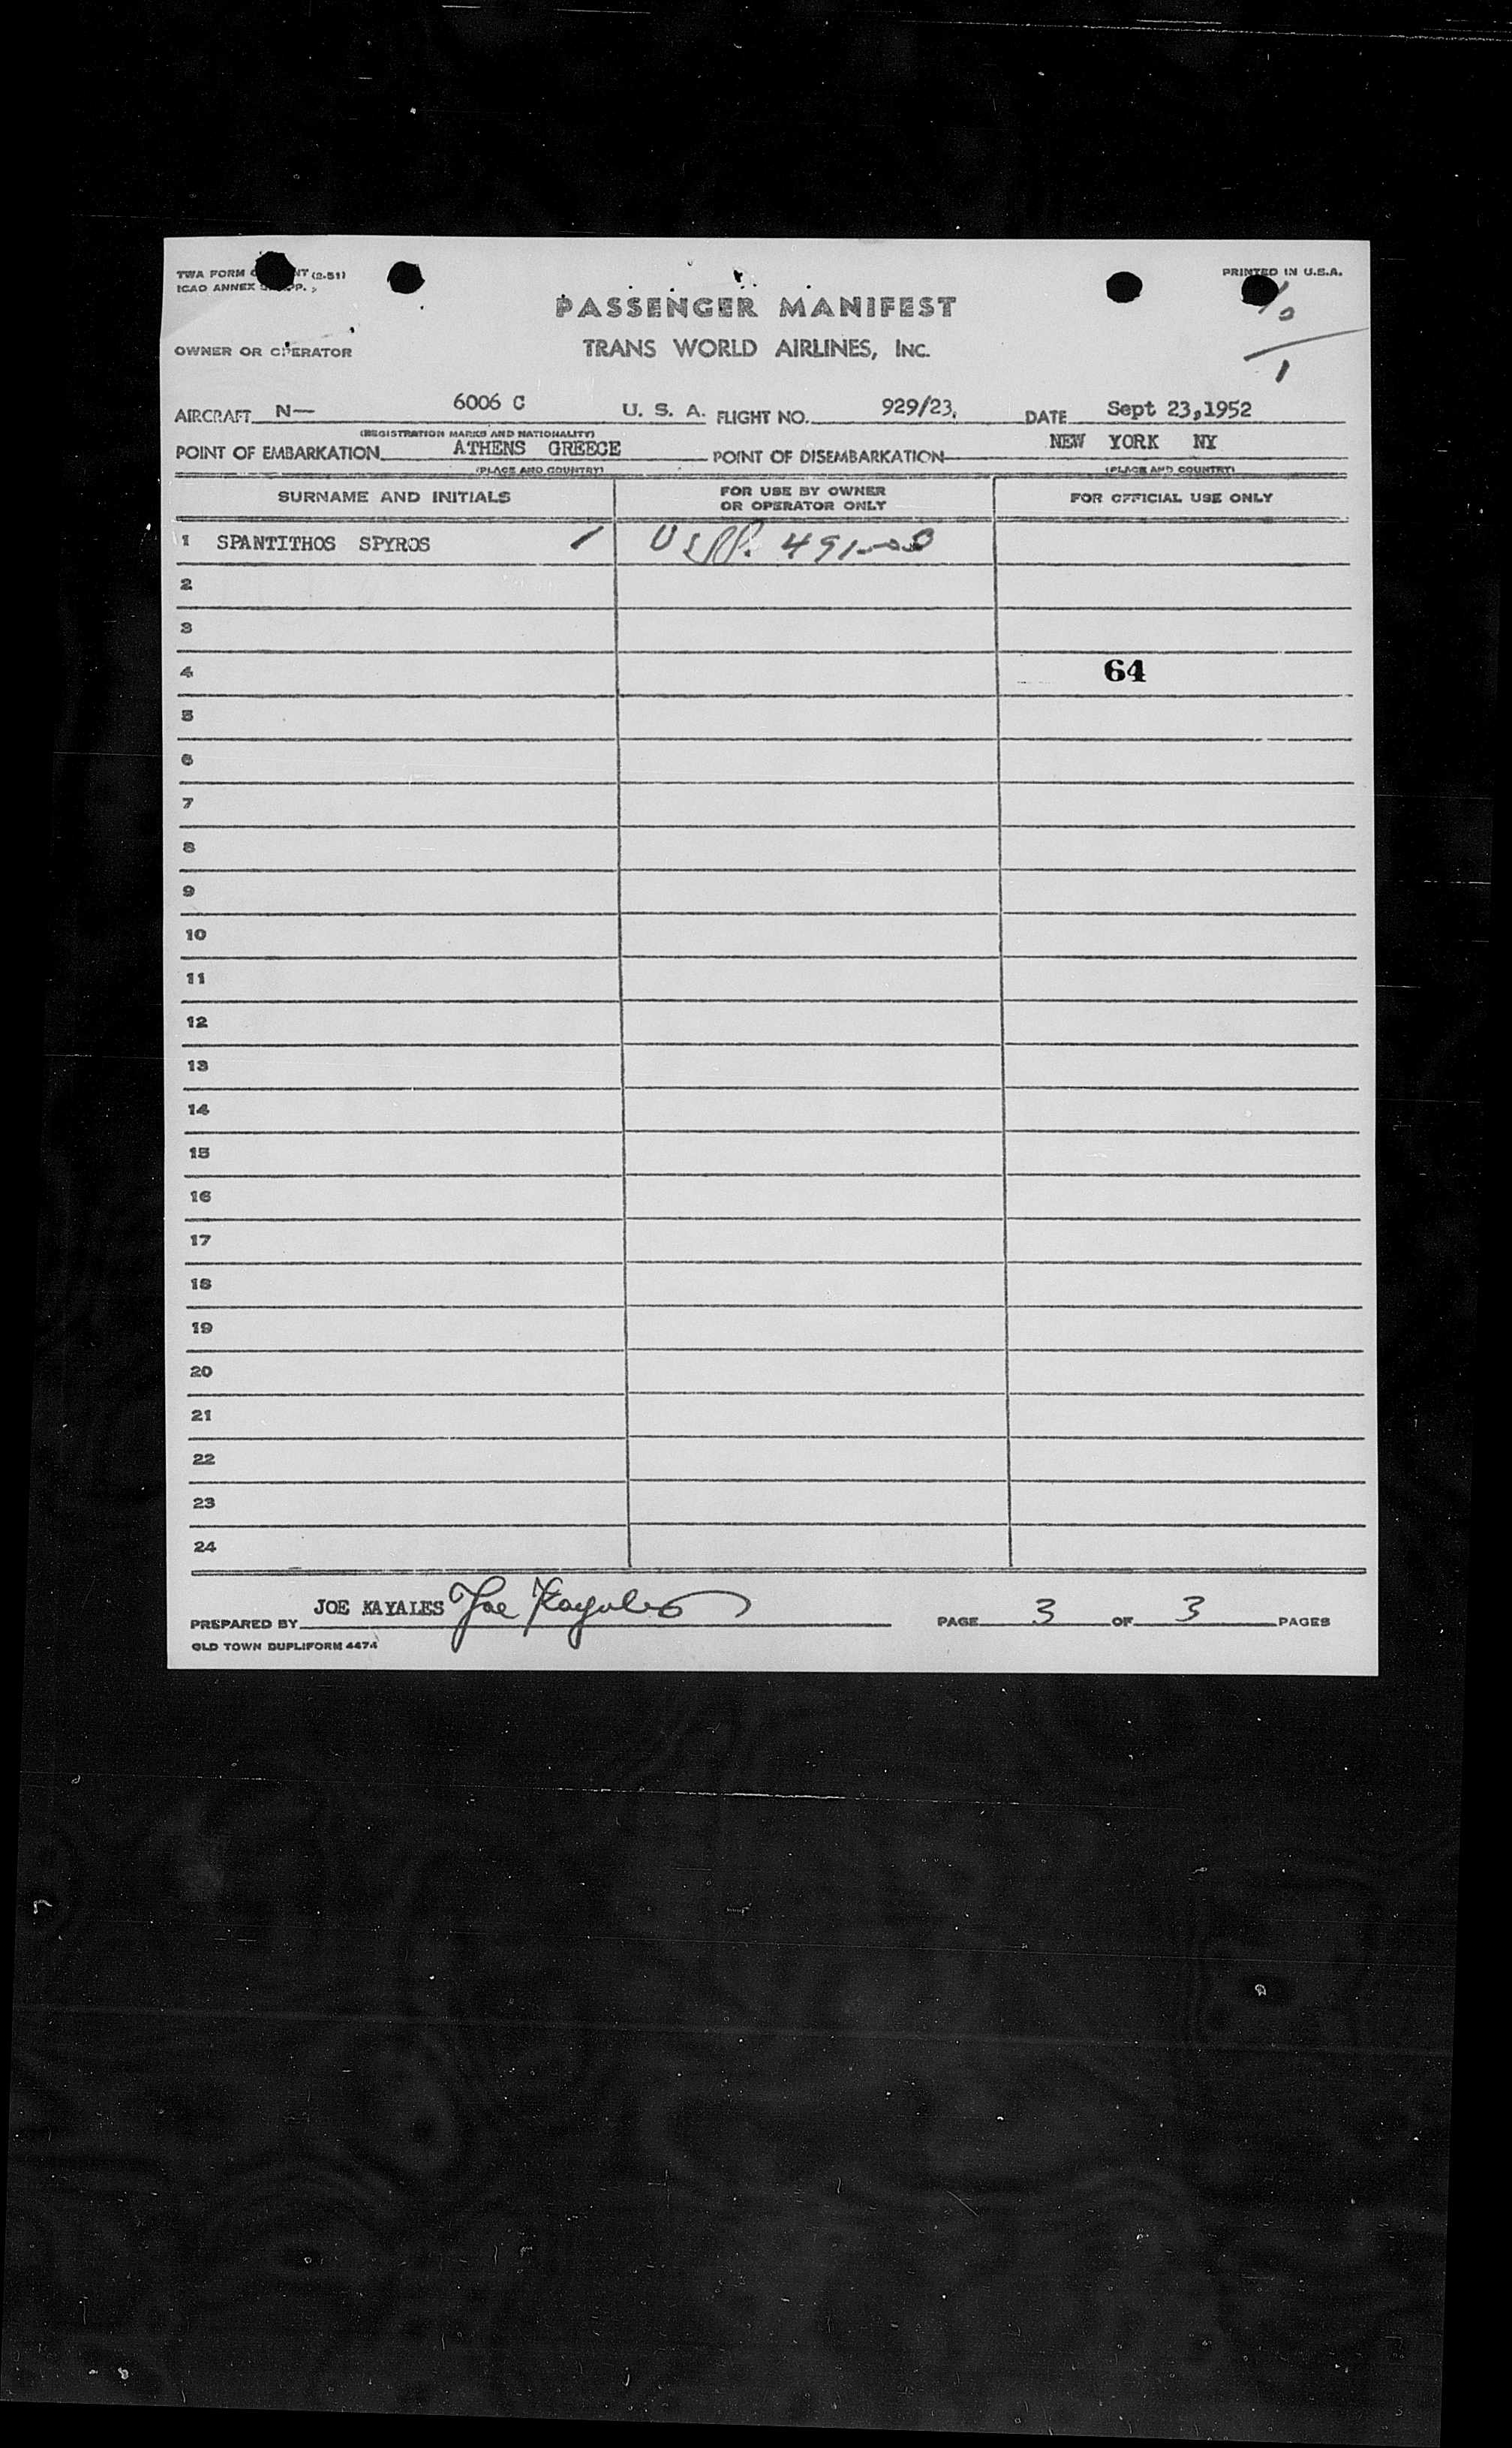 TWA FORM (2-51)
ICAO ANNEX
PRINTED IN U.S.A.
PASSENGER MANIFEST
OWNER OR OPERATOR
TRANS WORLD AIRLINES, INC.
1
AIRCRAFT N— 6006 C U. S. A. FLIGHT NO. 929/23, DATE Sept 23,1952
(REGISTRATION MARKS AND NATIONALITY)
POINT OF EMBARKATION ATHENS GREECE POINT OF DISEMBARKATION NEW YORK NY
(PLACE AND COUNTRY) (PLACE AND COUNTRY)
SURNAME AND INITIALS FOR USE BY OWNER OR OPERATOR ONLY FOR OFFICIAL USE ONLY
1 SPANTITHOS SPYROS
2
3
4 64
5
6
7
8
9
10
11
12
13
14
15
16
17
18
19
20
21
22
23
24
PREPARED BY JOE KAYALES Joe Kayales PAGE 3 OF 3 PAGES
OLD TOWN DUPLIFORM 4474